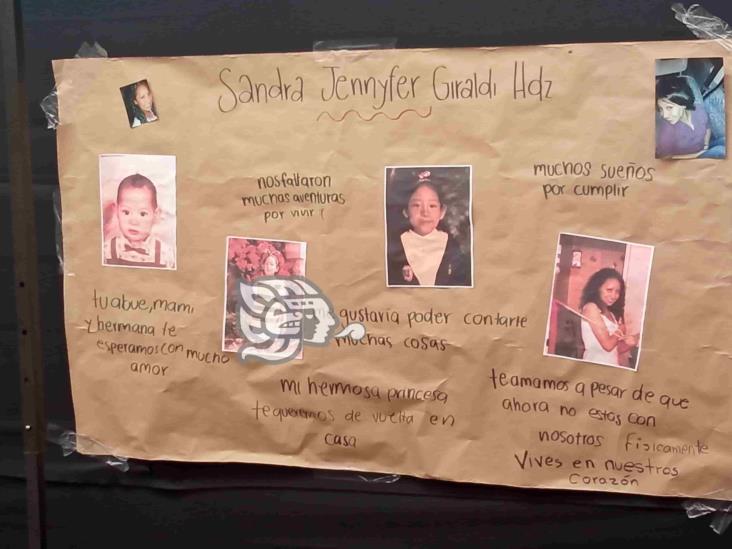 Sandra Jennyfer Giraldi Hdz
nos faltaron
muchas aventuras
por vivir
muchos sueños
por cumplir
tu abue, mami
y hermana te
esperamos con mucho
amor
gustaria poder contarte
muchas cosas
mi hermosa princesa
te queremos de vuelta en
casa
te amamos a pesar de que
ahora no estas con
nosotros fisicamente
Vives en nuestros
Corazón